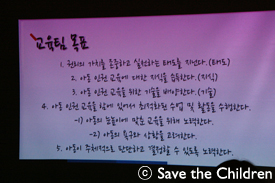 교육팀 목표
1. 권리의 가치를 존중하고 실천하는 태도를 지닌다.(태도)
2. 아동 인권 교육에 대한 지식을 습득한다.(지식)
3. 아동 인권 교육을 위한 기술을 배양한다.(기술)
4. 아동 인권 교육을 함에 있어서 최적화된 수업 및 활동을 수행한다.
-1) 아동의 눈높이에 맞춘 교육을 위해 노력한다.
-2) 아동의 욕구와 상황을 고려한다.
5. 아동이 주체적으로 판단하고 결정할 수 있도록 노력한다.
© Save the Children